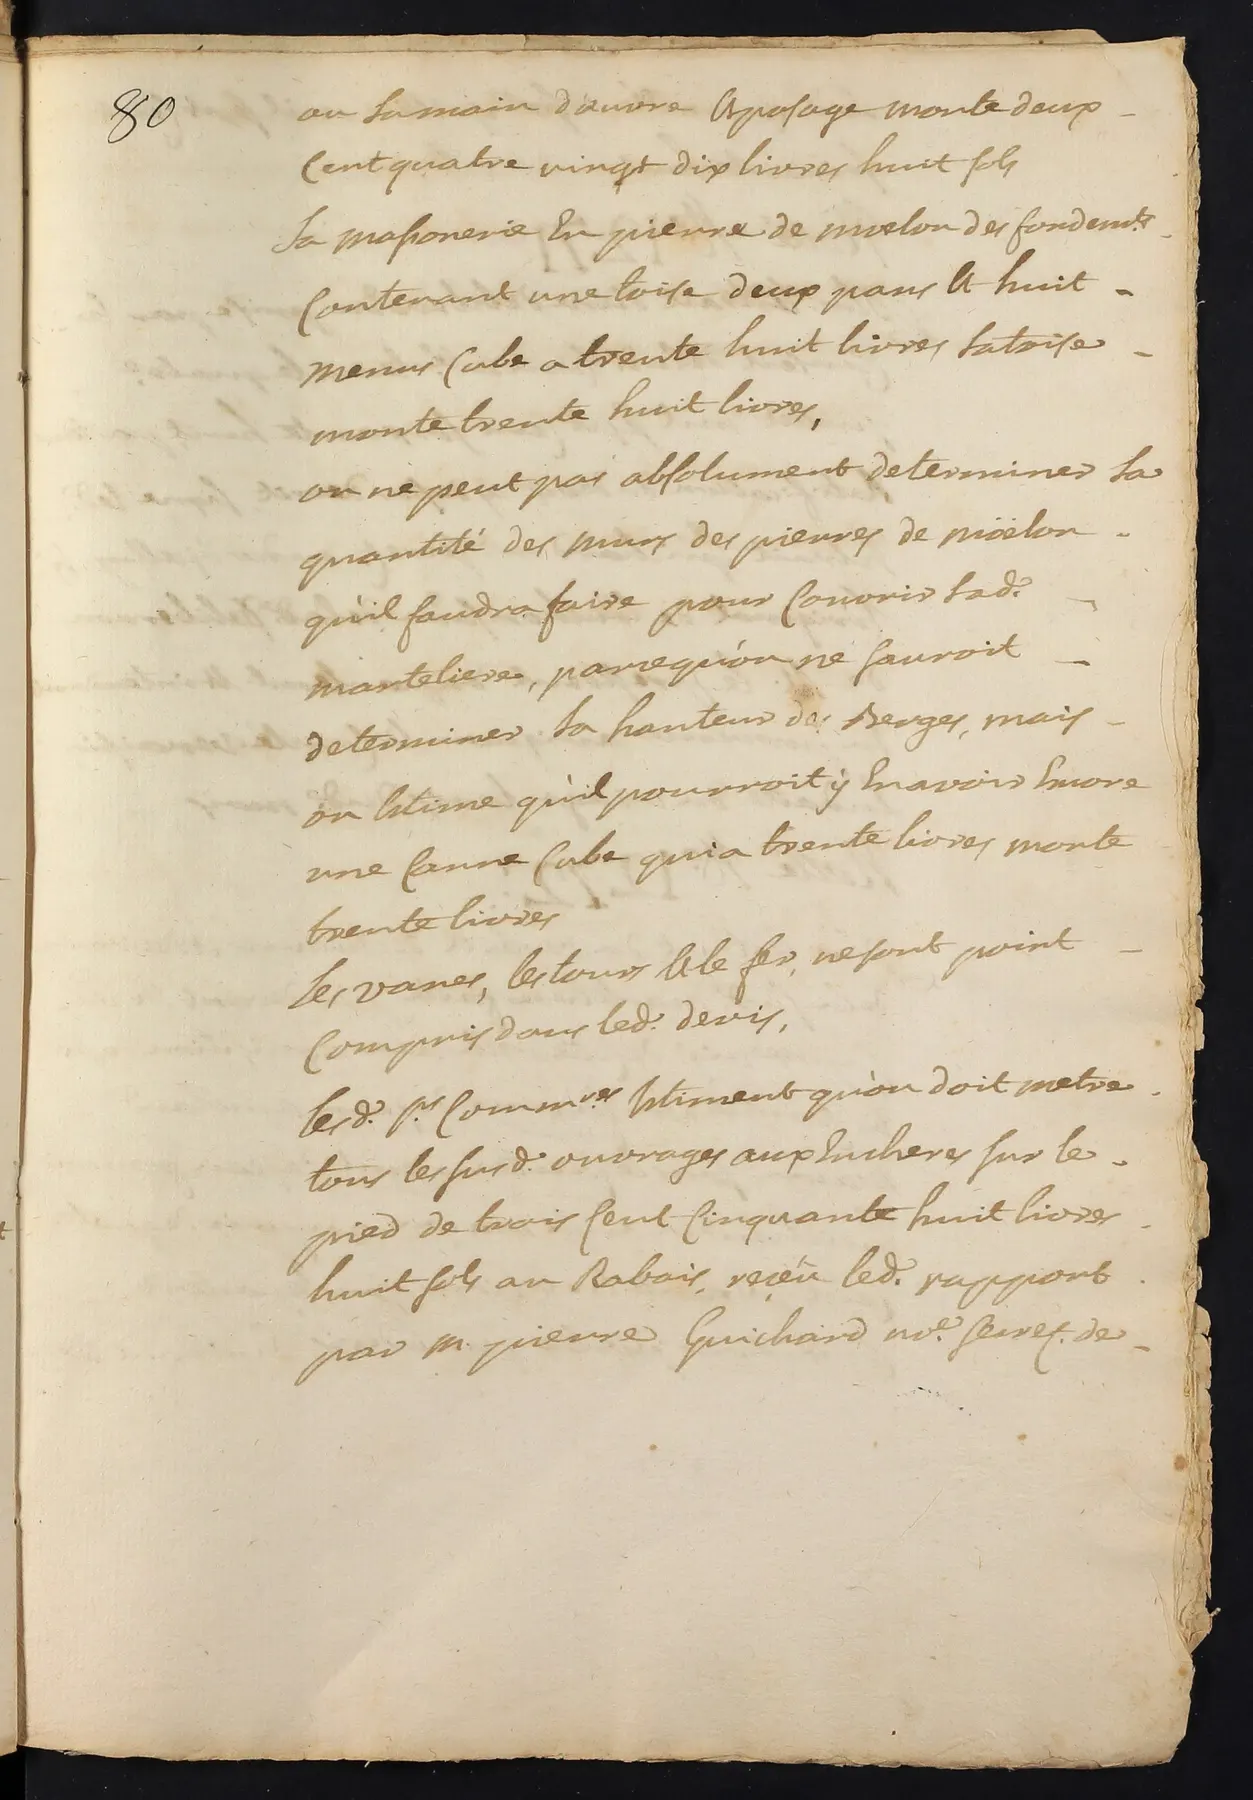 80
ou la main d'œuvre et posage monte deux
cent quatre vingt dix livres huit sols
La massonerie en pierre de moelon des fondemts
contenant une toise deux pans et huit
menus cube a trente huit livres la toise
monte trente huit livres,
on ne peut pas absolument determiner la
quantité des murs des pierres de möelon
qu'il faudra faire pour couvrir lad.e
marteliere, parcequ'on ne sauroit
determiner la hauteur des Berges, mais
on estime qu'il pourroit ÿ en avoir encore
une canne cube qui a trente livres monte
trente livres
Les vanes, les tours et le fer, ne sont point
compris dans led.e devis,
lesd.e srs Commres estiment qu'on doit metre
tous les susd.e ouvrages aux encheres sur le
pied de trois cent cinquante huit livres
huit sols au Rabais, reçëu led.e rapport
par m. pierre Guichard nore secret. de